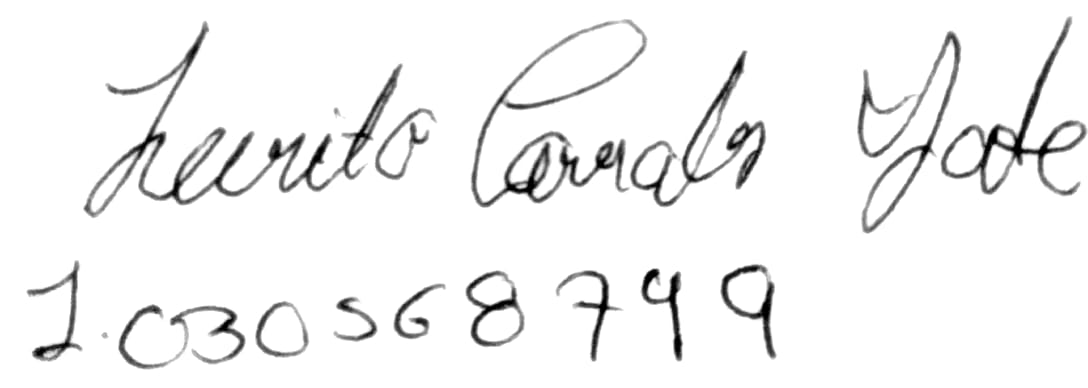 Laurito Corrales Yate
1.030568799